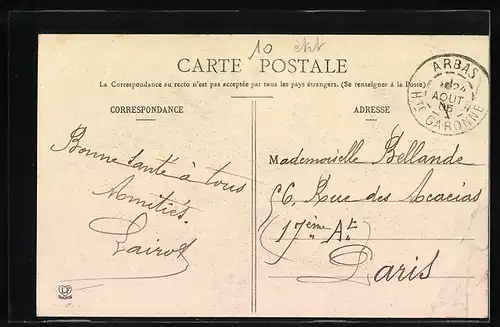 10
CARTE POSTALE
La Correspondance au recto n'est pas acceptée par tous les pays étrangers. (Se renseigner à la Poste)
CORRESPONDANCE
ADRESSE
ARBAS
AOUT
05
HTE GARONNE
Bonne santé à tous
Amitiés.
Mademoiselle Bellande
56, Rue des Acacias
(17ème At)
Paris